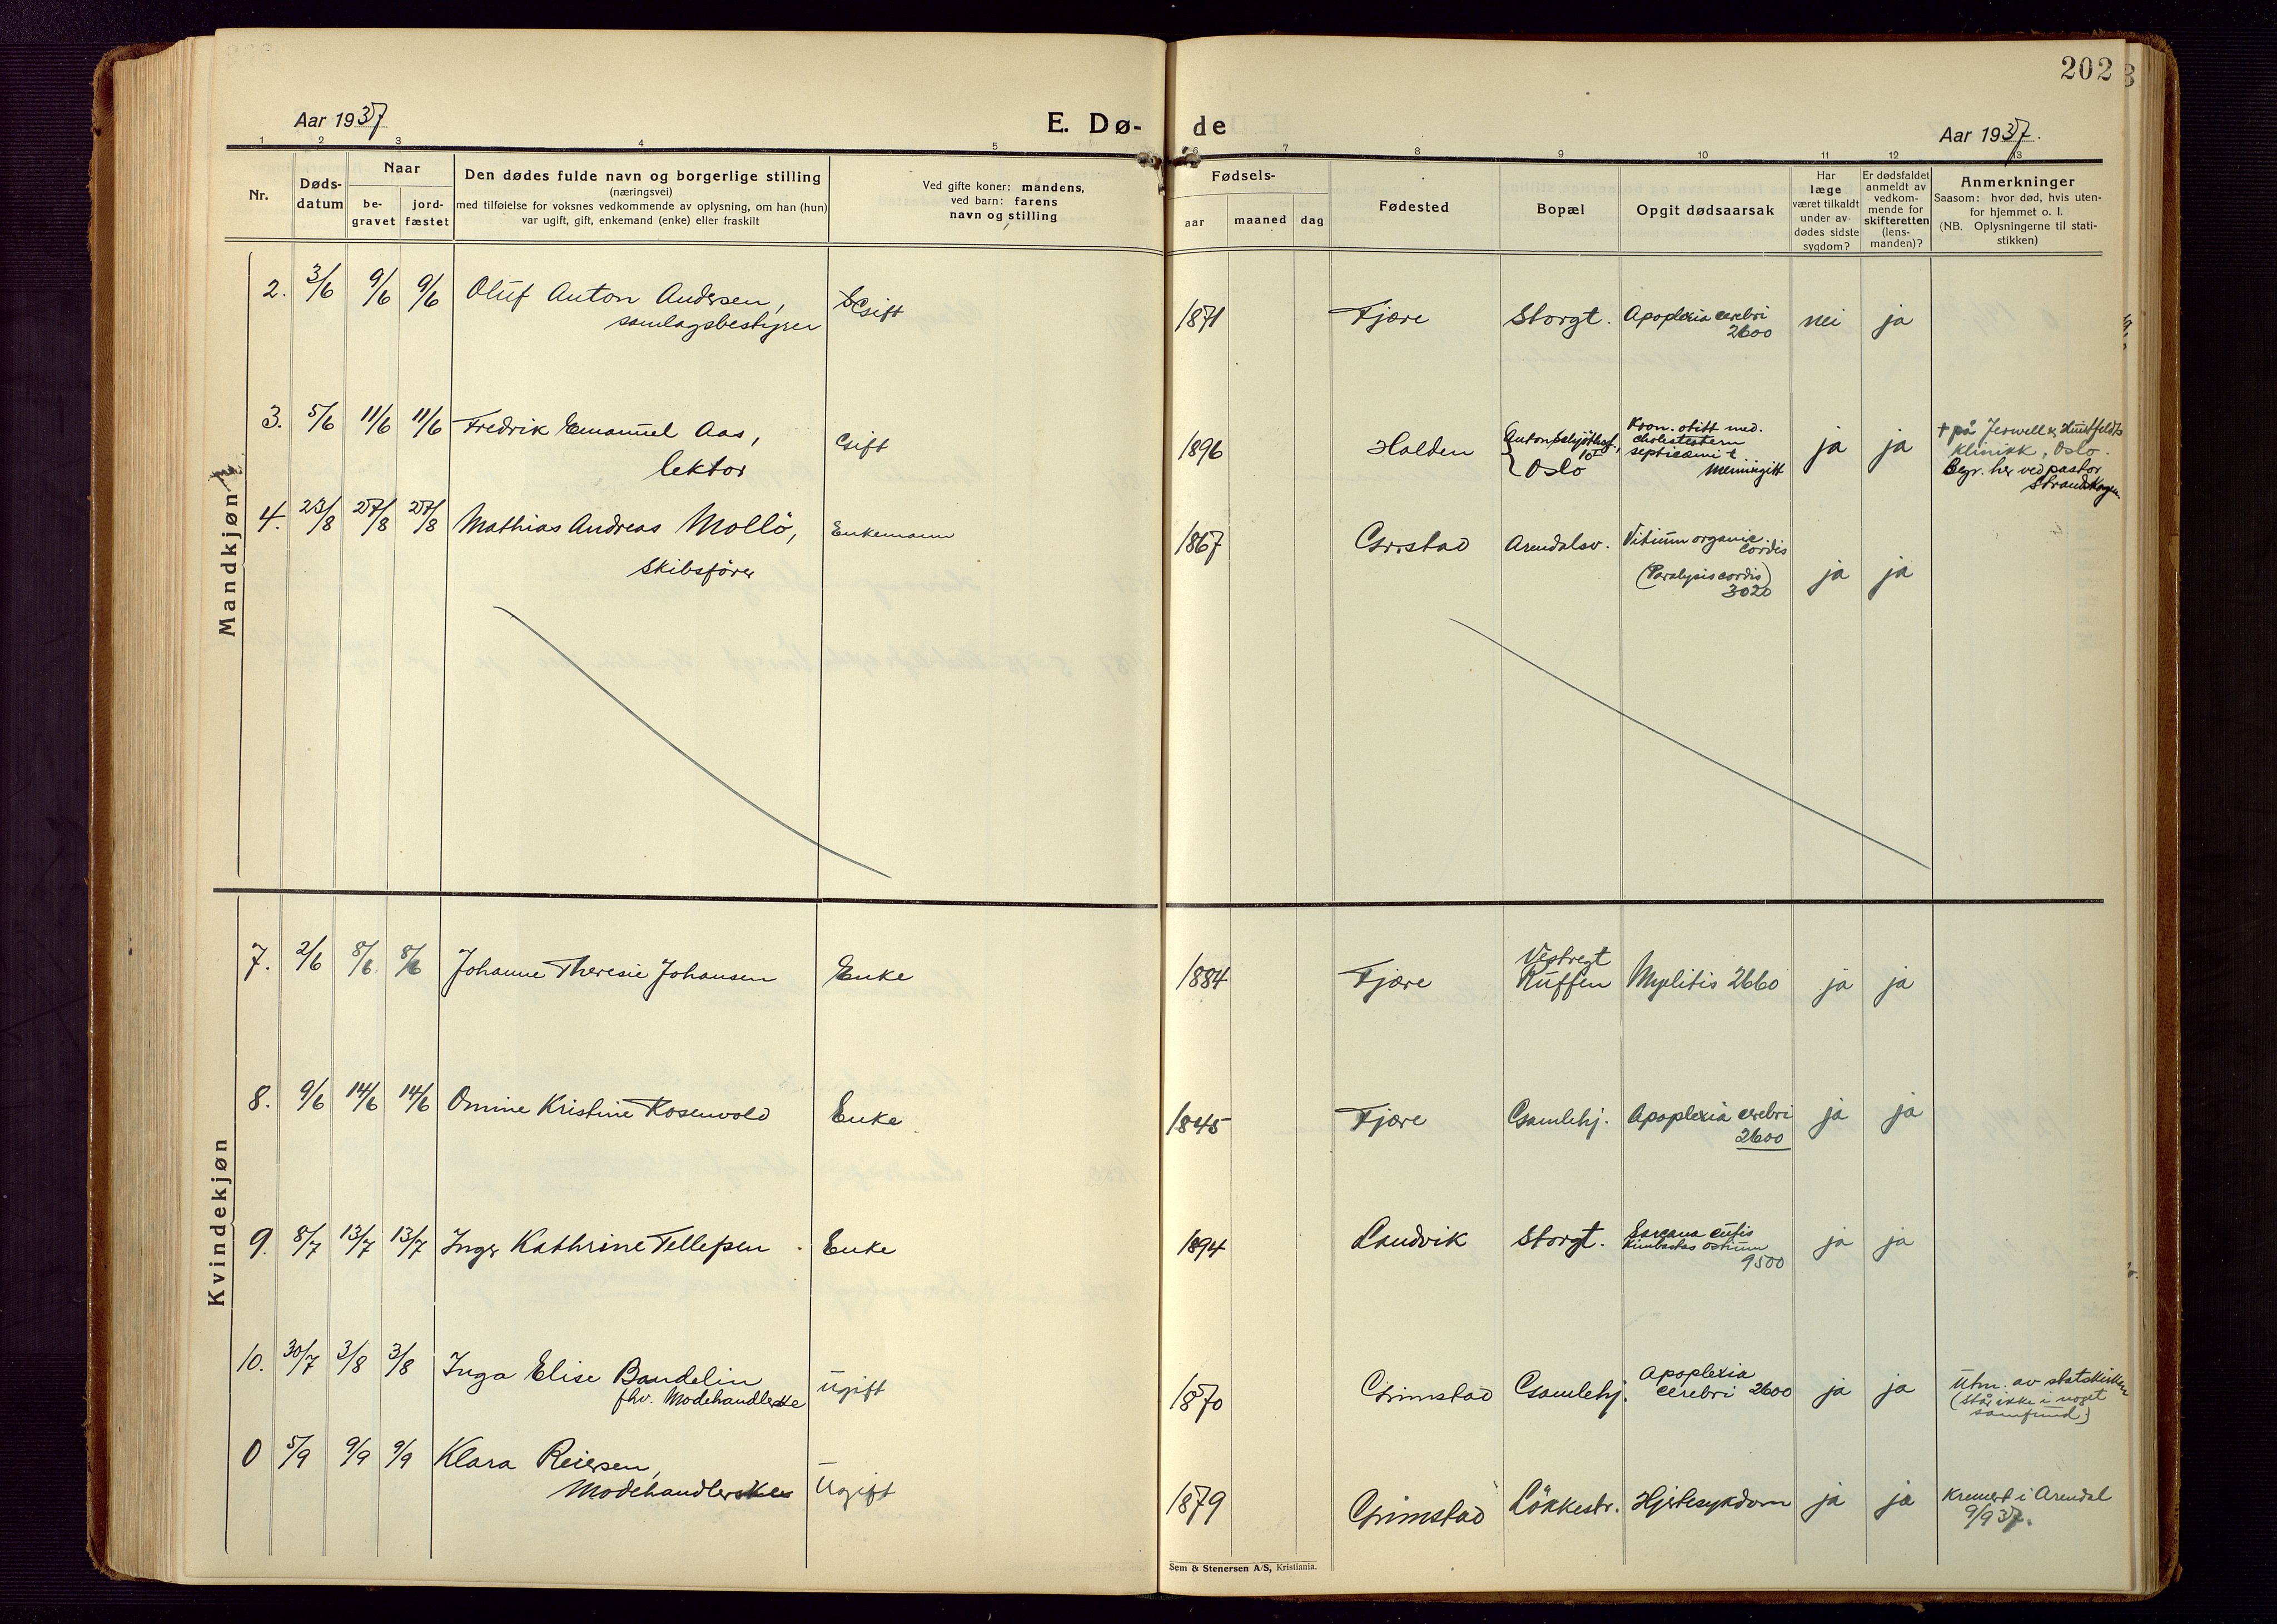 202
Aar 1937
E. Dø-
de
Aar 1937.
1 2 3 4 5 6 7 8 9 10 11 12 13
Nr.
Døds-
datum
Naar
be-
gravet
jord-
fæstet
Den dødes fulde navn og borgerlige stilling
(næringsvei)
med tilføielse for voksnes vedkommende av oplysning, om han (hun)
var ugift, gift, enkemand (enke) eller fraskilt
Ved gifte koner: mandens,
ved barn: farens
navn og stilling
Fødsels-
aar
maaned
dag
Fødested
Bopæl
Opgit dødsaarsak
Har
læge
været tilkaldt
under av-
dødes sidste
sygdom?
Er dødsfaldet
anmeldt av
vedkom-
mende for
skifteretten
(lens-
manden)?
Anmerkninger
Saasom: hvor død, hvis uten-
for hjemmet o. l.
(NB. Oplysningerne til stati-
stikken)
Mandkjøn
2. 3/6 9/6 9/6 Oluf Anton Andersen,
samlagsbestyrer
Gift
1871 Fjære Storgt. Apoplexia cerebri
2600
nei ja
3. 5/6 11/6 11/6 Fredrik Emanuel Aas,
lektor
Gift
1896 Halden
Oslo
Kron. otitt med.
meningitt
ja ja
klinikk, Oslo.
Begr. her ved pastor
4. 23/8 27/8 27/8 Mathias Andreas Mollö,
Skibsförer
Enkemann
1867 Arendalsv. Vitium organic.
cordis
(Paralysis cordis)
3020
ja ja
Kvindekjøn
7. 2/6 8/6 8/6 Johanne Theresie Johansen Enke
1884 Fjære Vestregt
Kuffen
Myelitis 2660 ja ja
8. 9/6 14/6 14/6 Omine Kristine Rosenvold Enke
1845 Fjære Gamlehj. Apoplexia cerebri
2600
ja ja
9. 8/7 13/7 13/7 Inger Kathrine Tellefsen Enke
1894 Landvik Storgt.
9500
ja ja
10. 30/7 3/8 3/8 Inga Elise Bandelin
fhv. Modehandlerske
Ugift
1870 Grimstad Gamlehj. Apoplexia
cerebri 2600
ja ja
Utm. av statskirken
(står ikke i noget
samfund)
0 5/9 9/9 9/9 Klara Reiersen,
Modehandlerske
Ugift
1879 Grimstad Lökkestr. Hjertesykdom ja ja
Kremert i Arendal
9/9 37.
Sem & Stenersen A/S, Kristiania.